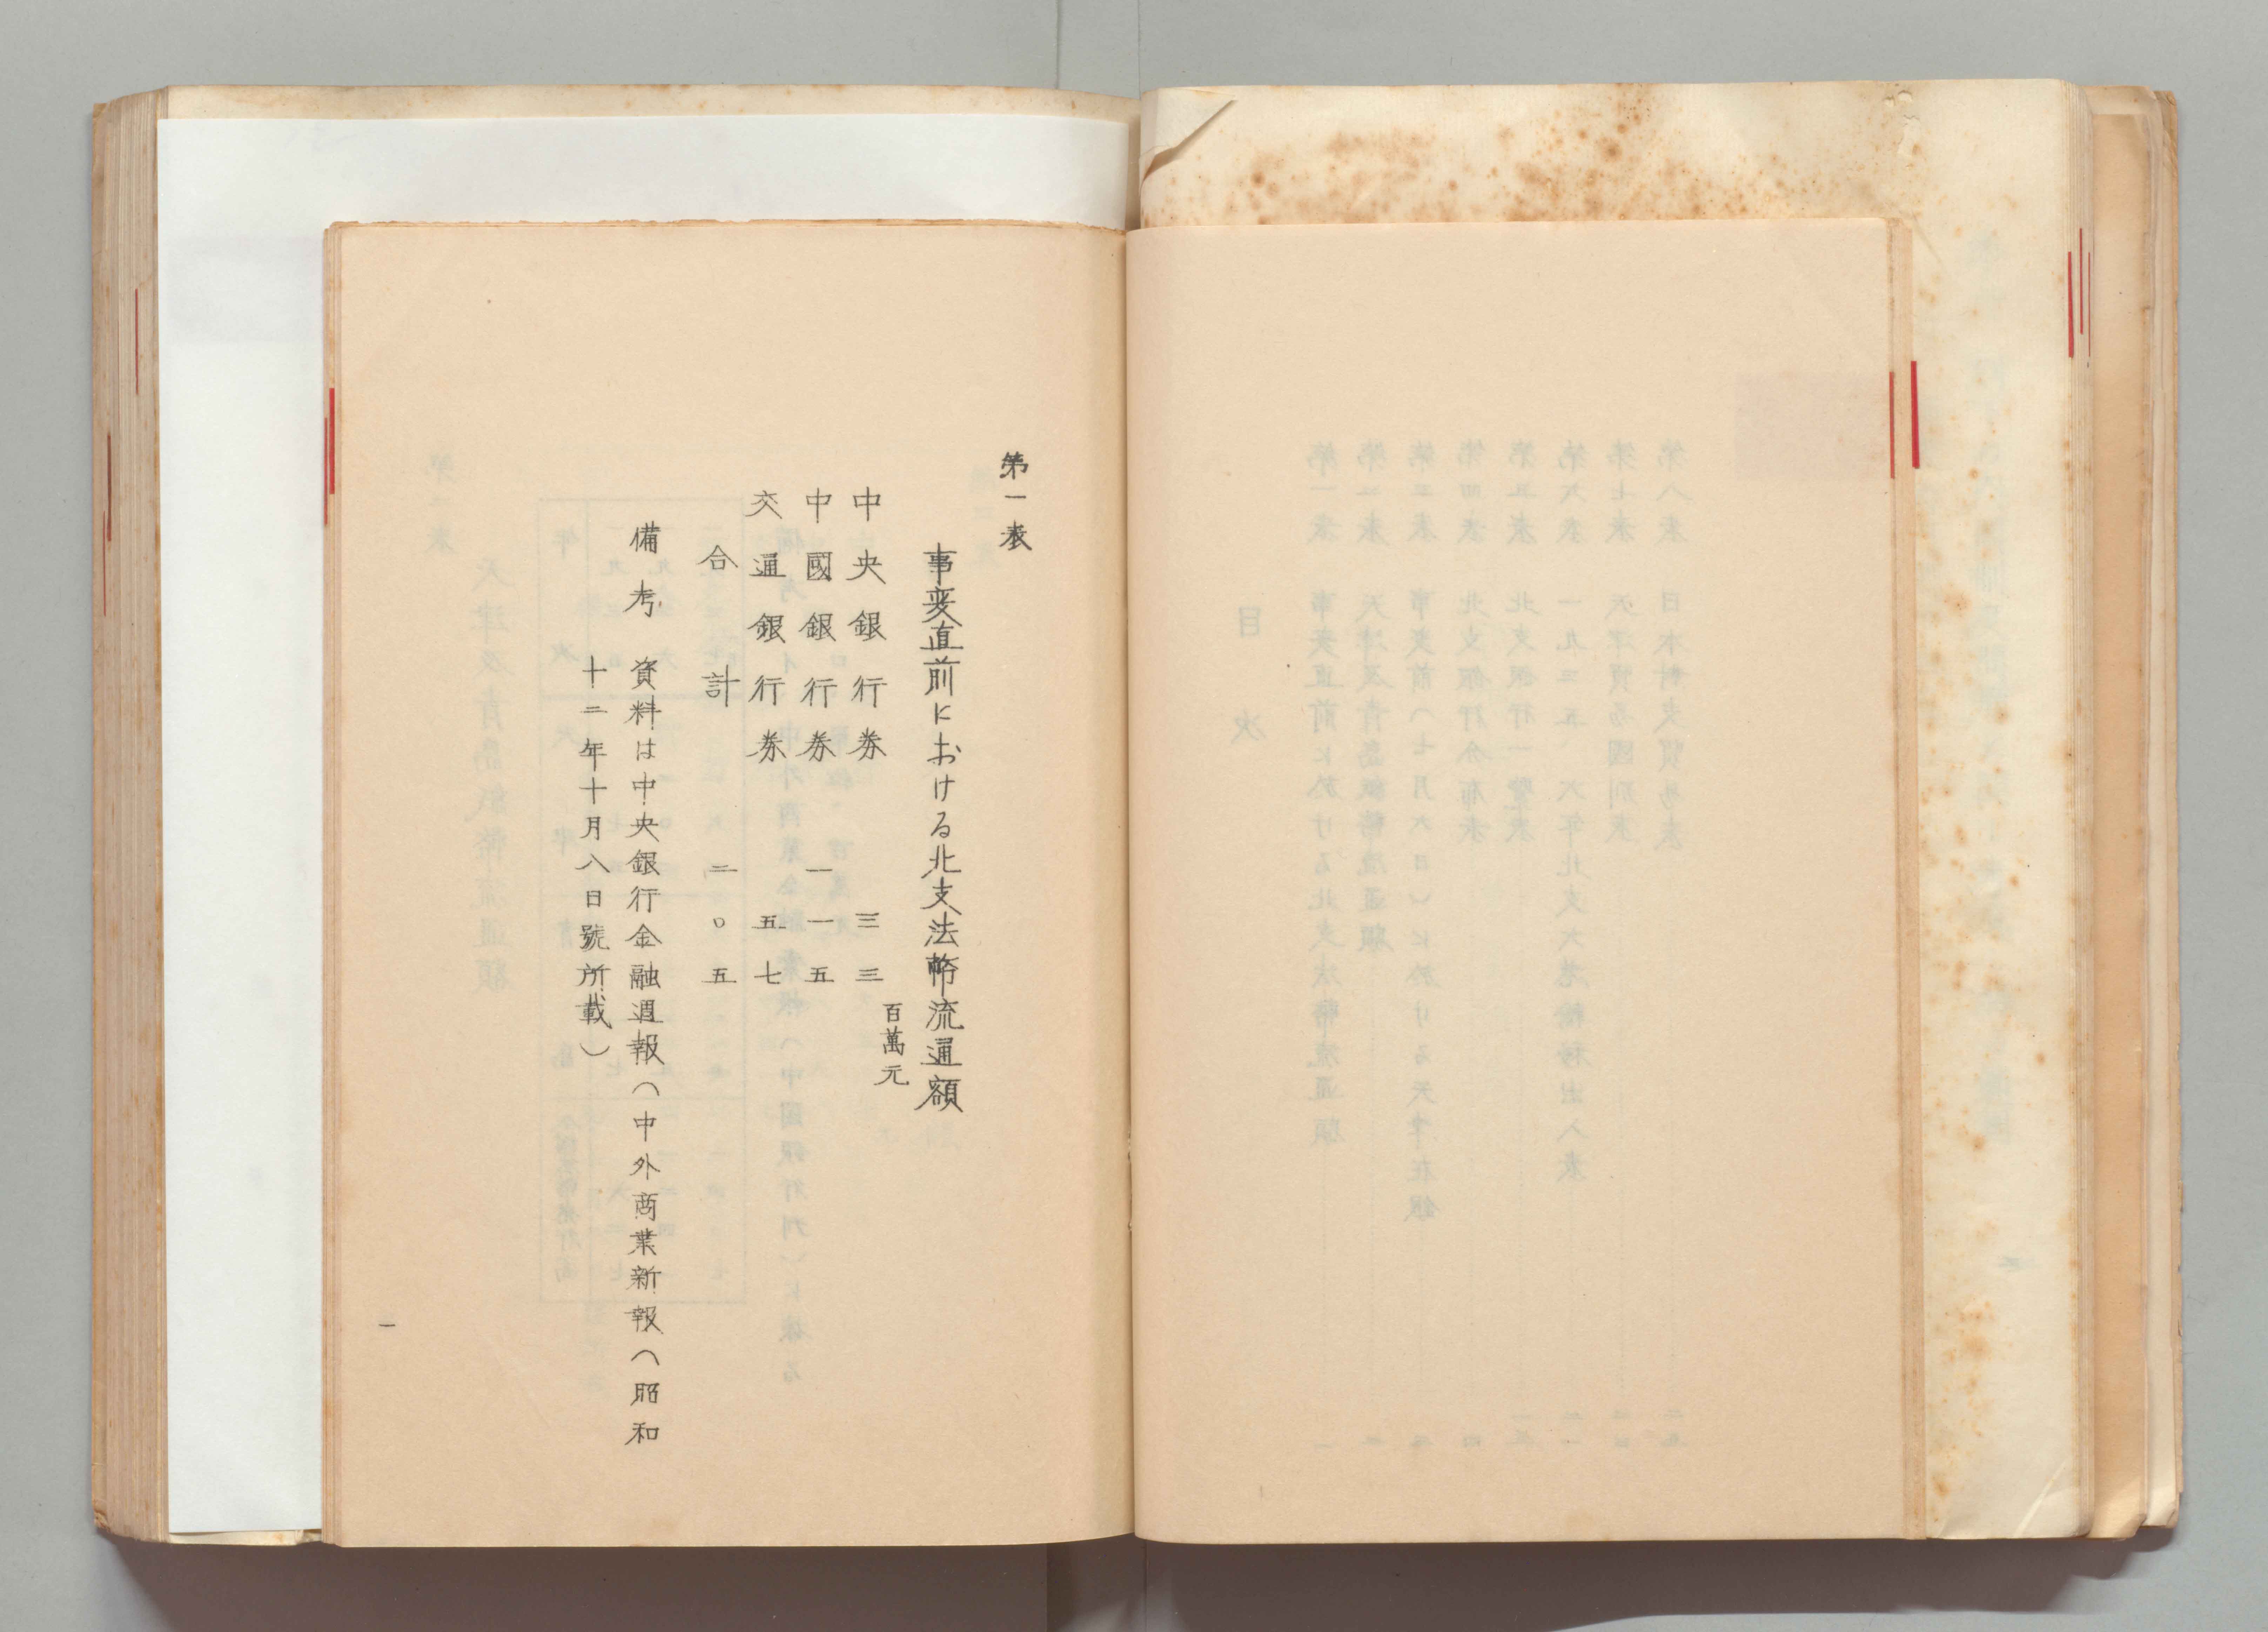 第一表
事変直前における北支法幣流通額
百萬元
中央銀行券 三三
中國銀行券 一一五
交通銀行券 五七
合計 二〇五
備考 資料は中央銀行金融週報(中外商業新報(昭和
十二年十月八日號所載)
一